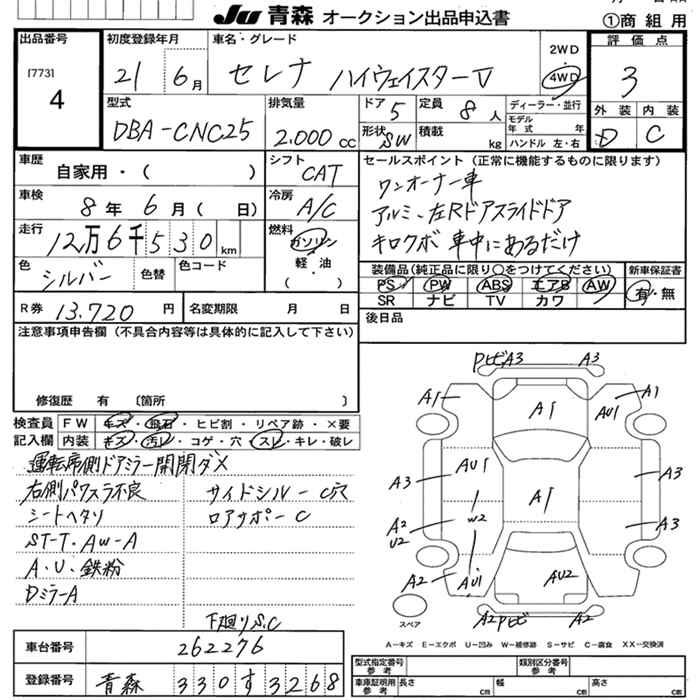 JU 青森 オークション出品申込書
①商組用
出品番号
[773]
4
初度登録年月
21 6月
車名・グレード
セレナ ハイウェイスターV
2WD
4WD
評価点
3
外装 内装
D C
型式
DBA-CNC25
排気量
2.000 cc
ドア 5
定員 8 人
形状 SW
積載 kg
ディーラー・並行
モデル年式 年式
ハンドル 左・右
車歴
自家用・( )
シフト
CAT
車検
8年 6月( 日)
冷房
A/C
走行
12万6千530km
燃料
ガソリン
軽・油
( )
色
シルバー
色替
色コード
セールスポイント(正常に機能するものに限ります)
ワンオーナー車
アルミ、左Rドアスライドドア
キロクボ 車中にあるだけ
装備品(純正品に限り○をつけてください)
PS PW ABS エアB AW
SR ナビ TV カワ
新車保証書
有・無
R券 13.720 円
名変期限 月 日
後日品
注意事項申告欄(不具合内容等は具体的に記入して下さい)
修復歴 有 〔箇所 〕
検査員
記入欄
FW キズ・飛石・ヒビ割・リペア跡・×要
内装 キズ・汚レ・コゲ・穴・スレ・キレ・破レ
運転席側ドアミラー開閉ダメ
右側パワスラ不良
サイドシル-C穴
シートヘタリ
ロアサポ-C
ST-T.AW-A
A.U.鉄粉
Dミラ-A
下廻りS.C
PヒビA3
A3
A1
A1
A1
AU1
AU1
A1
A3
A3
A2
U2
W2
A3
A2
AU1
AU2
A2Pヒビ
A2
スペア
A-キズ E-エクボ U-凹み W-補修跡 S-サビ C-腐食 XX-交換済
車台番号
262276
登録番号
青森 330 す 3268
型式指定番号
参考
類別区分番号
参考
車庫証明用
参考
長さ cm
幅 cm
高さ cm